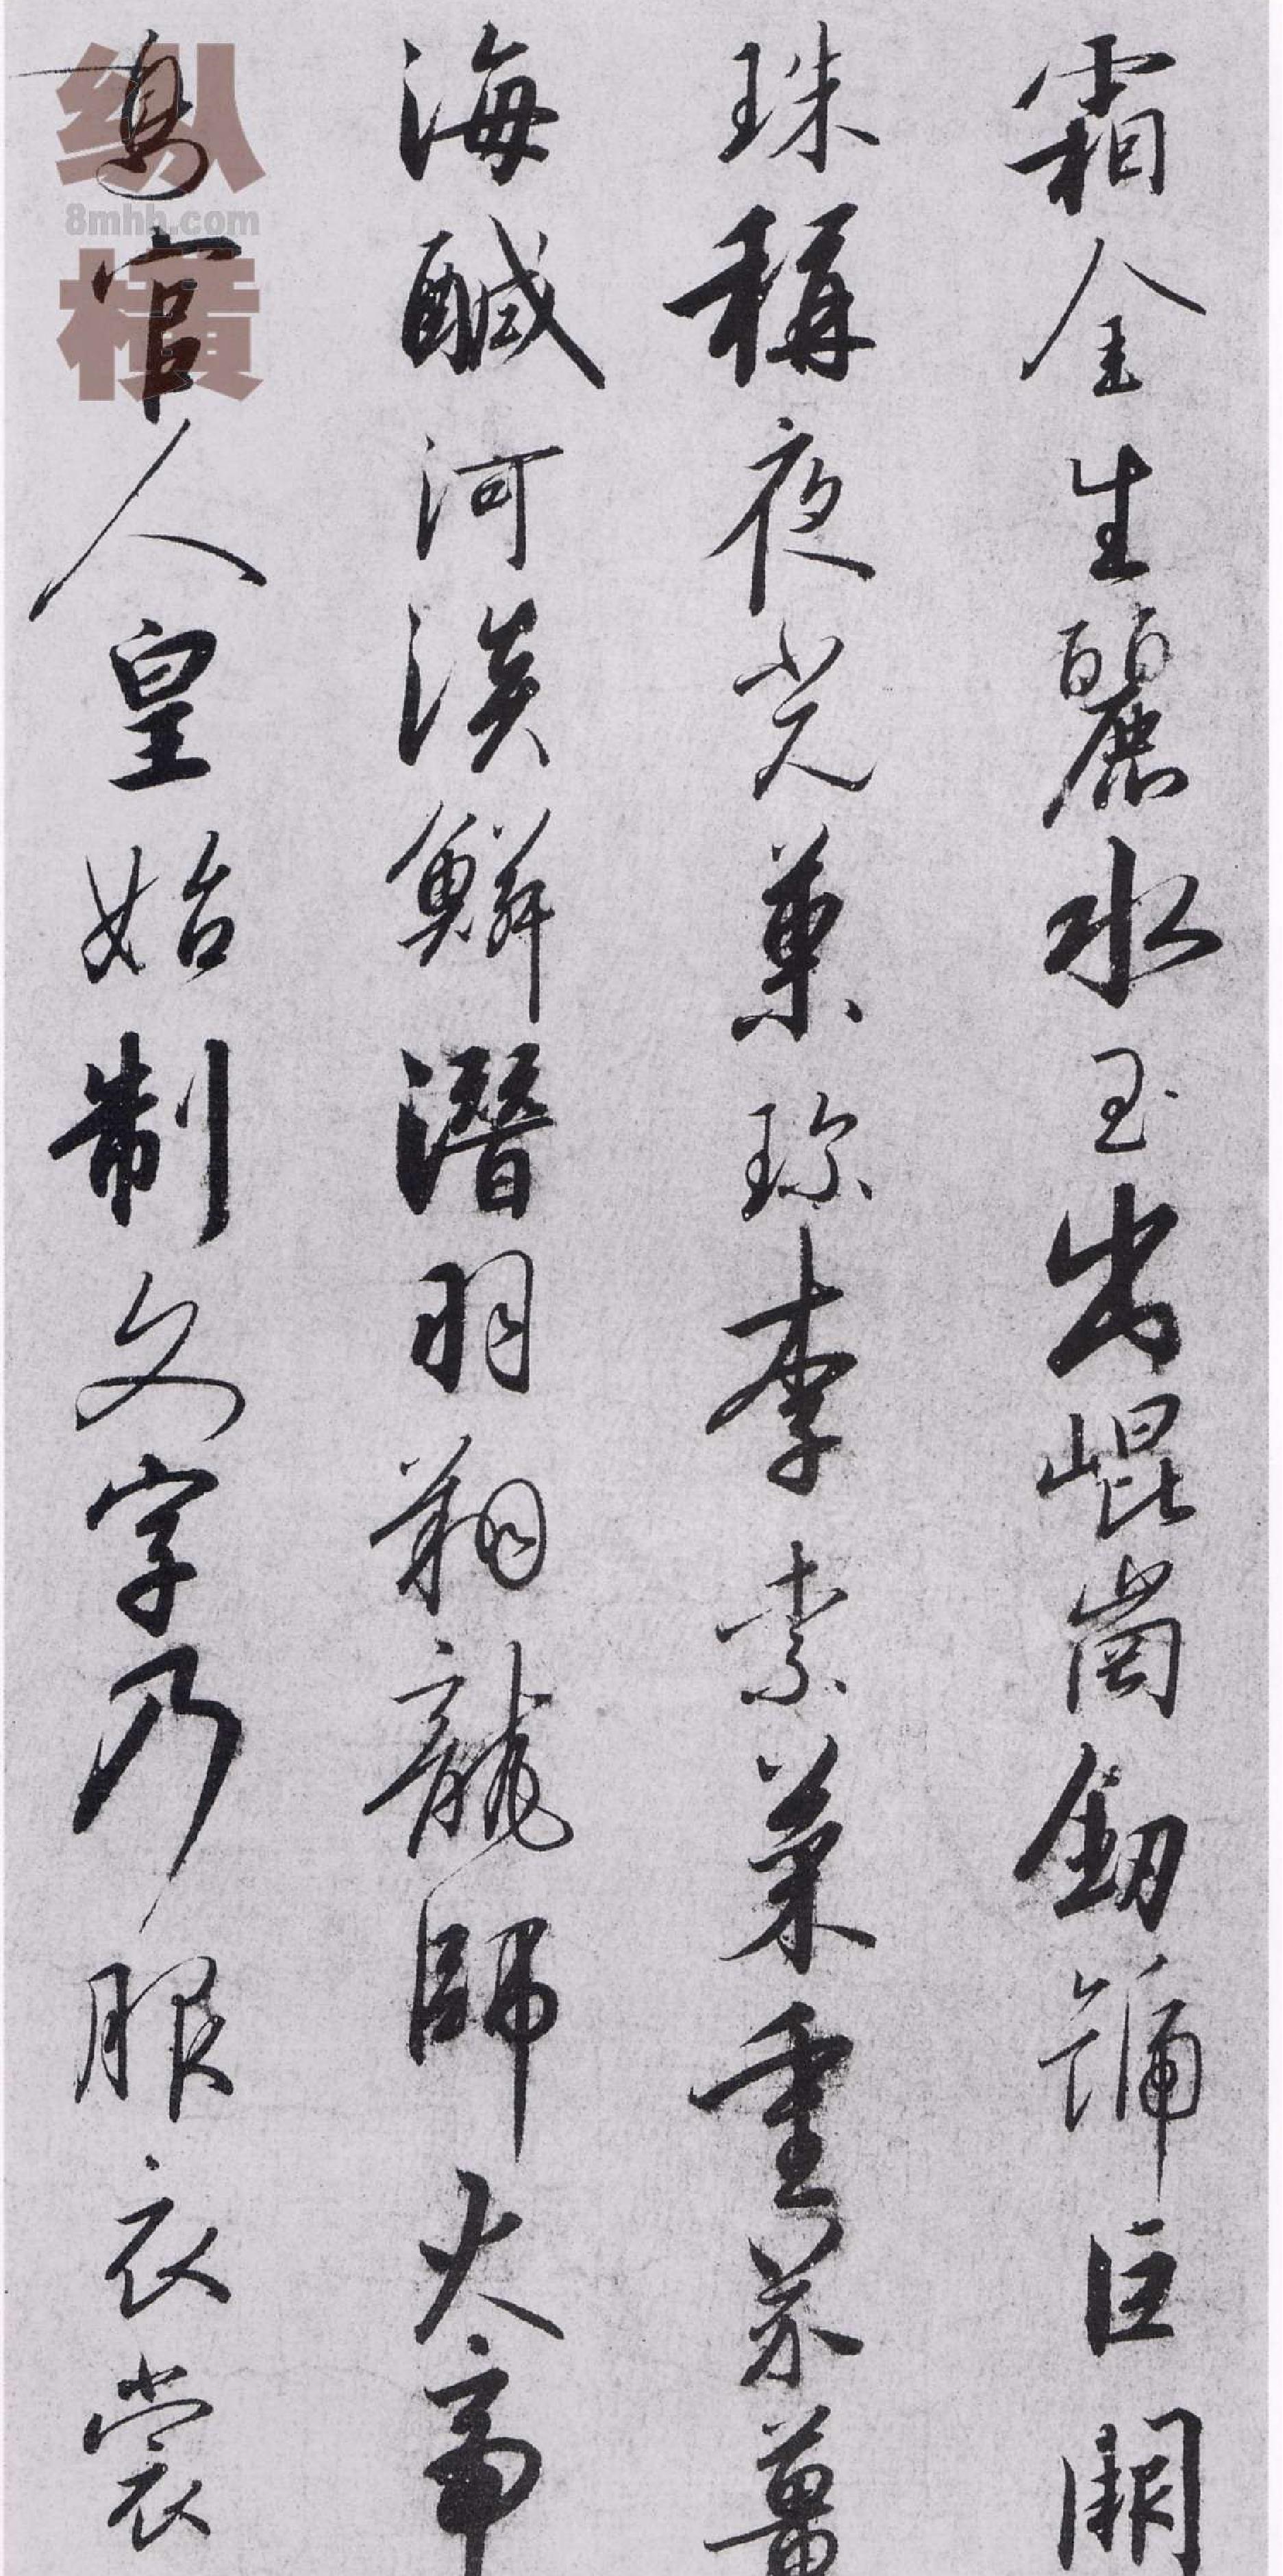 霜金生麗水玉出崐崗劒號巨闕
珠稱夜光菓珍李柰菜重芥薑
海鹹河淡鱗潛羽翔龍師火帝
鳥官人皇始制文字乃服衣裳
纵横
8mhh.com